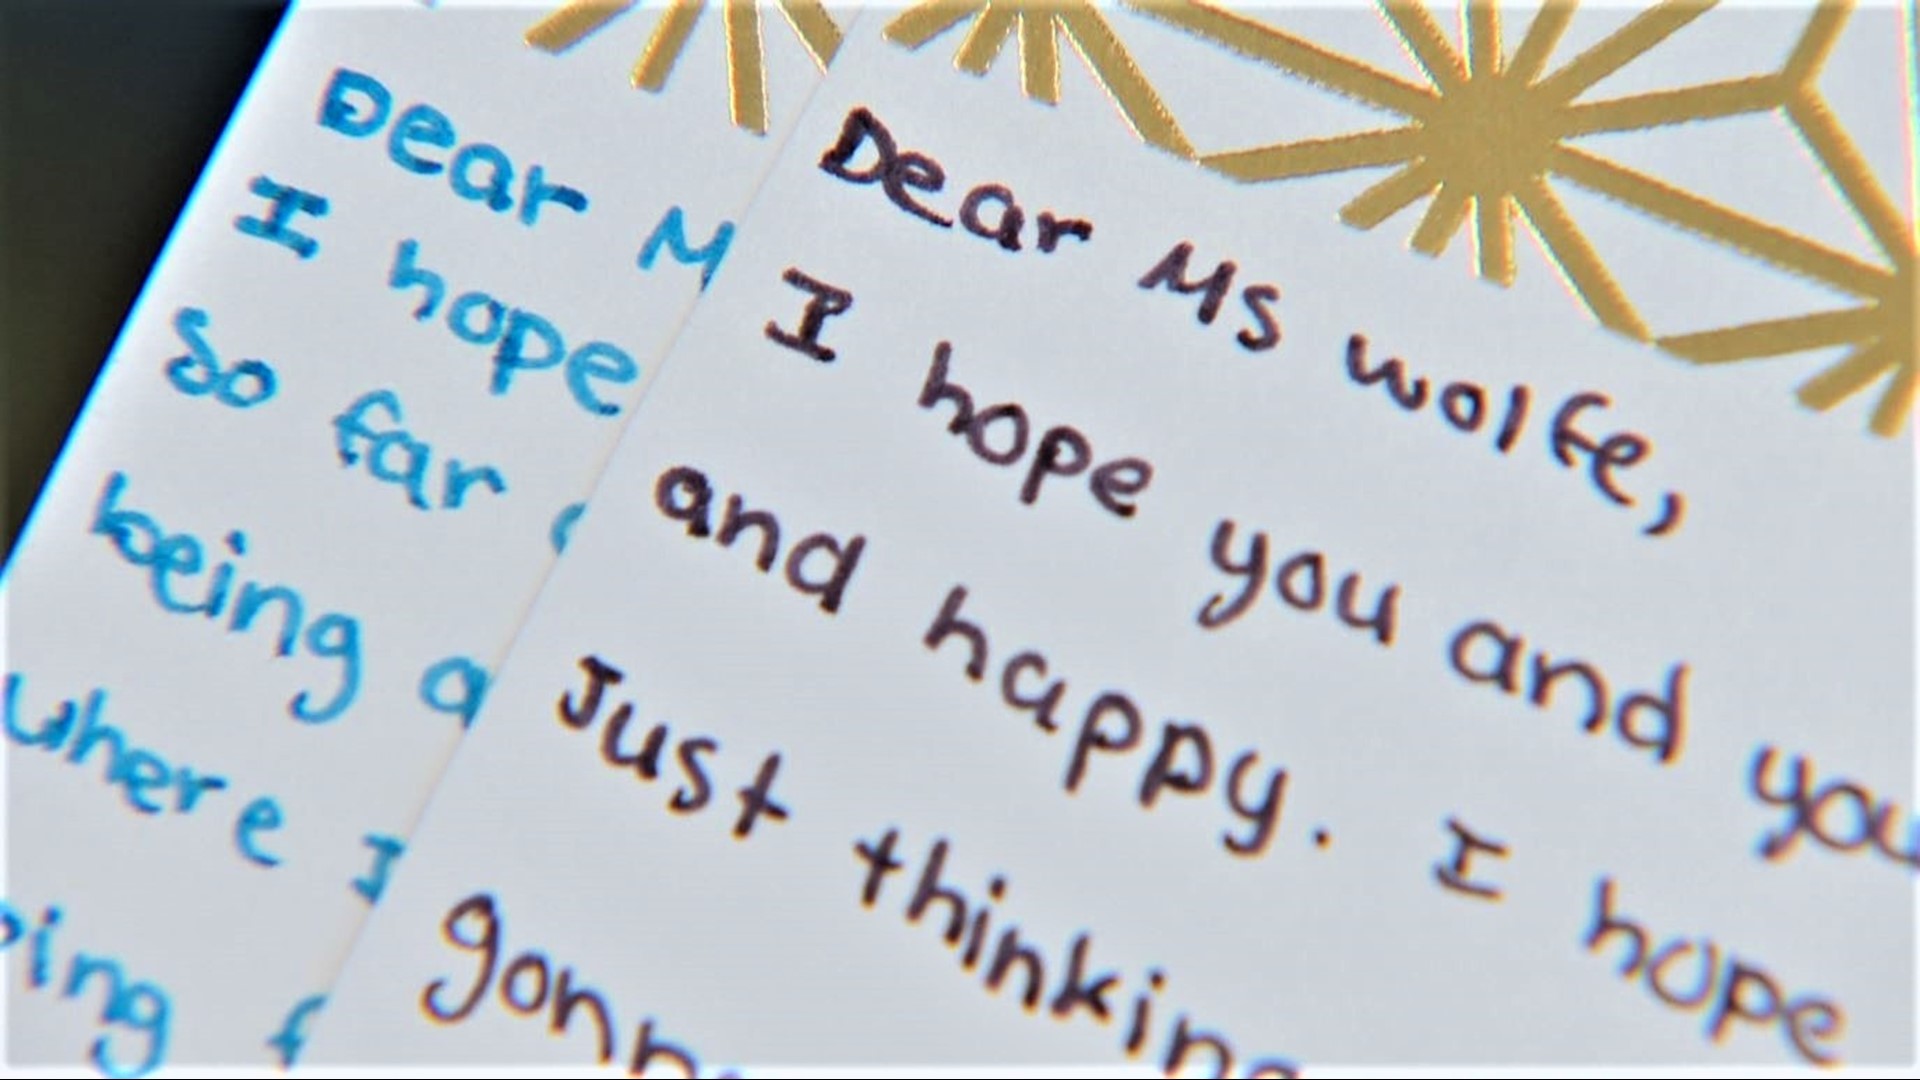 Dear M
I hope
So far
being a
where I
ing f
Dear Ms wolfe,
I hope you and you
and happy. I hope
Just thinking
gonn